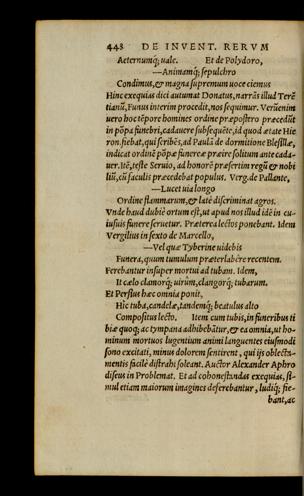 448 DE INVENT. RERVM
Aeternumq́; uale. Et de Polydoro,
—Animamq́; sepulchro
Condimus, & magna supremum uoce ciemus
Hinc exequias dici autumat Donatus, narrãs illud Terẽ
tianũ, Funus interim procedit, nos sequimur. Verũenim
uero hoc tẽpore homines ordine præpostero præcedũt
in põpa funebri, cadauere subsequẽte, id quod ætate Hie
ron. fiebat, qui scribẽs, ad Paulã de dormitione Blesillæ,
indicat ordinẽ põpæ funereæ præire solitum ante cada-
uer. Itẽ, teste Seruio, ad honorẽ præsertim regũ & nobi
liũ, cũ faculis præcedebat populus. Verg. de Pallante,
—Lucet uia longo
Ordine flammarum, & latè discriminat agros.
Vnde haud dubiè ortum est, ut apud nos illud idẽ in cu-
iusuis funere seruetur. Præterea lectos ponebant. Idem
Vergilius in sexto de Marcello,
—Vel quæ Tyberine uidebis
Funera, quum tumulum præterlabêre recentem.
Ferebantur insuper mortui ad tubam. Idem,
It cælo clamorq́; uirûm, clangorq́; tubarum.
Et Persius hæc omnia ponit,
Hic tuba, candelæ, tandemq́; beatulus alto
Compositus lecto. Item cum tubis, in funeribus ti
biæ quoq; ac tympana adhibebãtur, & ea omnia, ut ho
minum mortuos lugentium animi languentes eiusmodi
sono excitati, minus dolorem sentirent, qui ijs oblecta-
mentis facilè distrahi soleant. Auctor Alexander Aphro
diseus in Problemat. Et ad cohonestandas exequias, si-
mul etiam maiorum imagines deferebantur, ludiq́; fie-
bant, ac